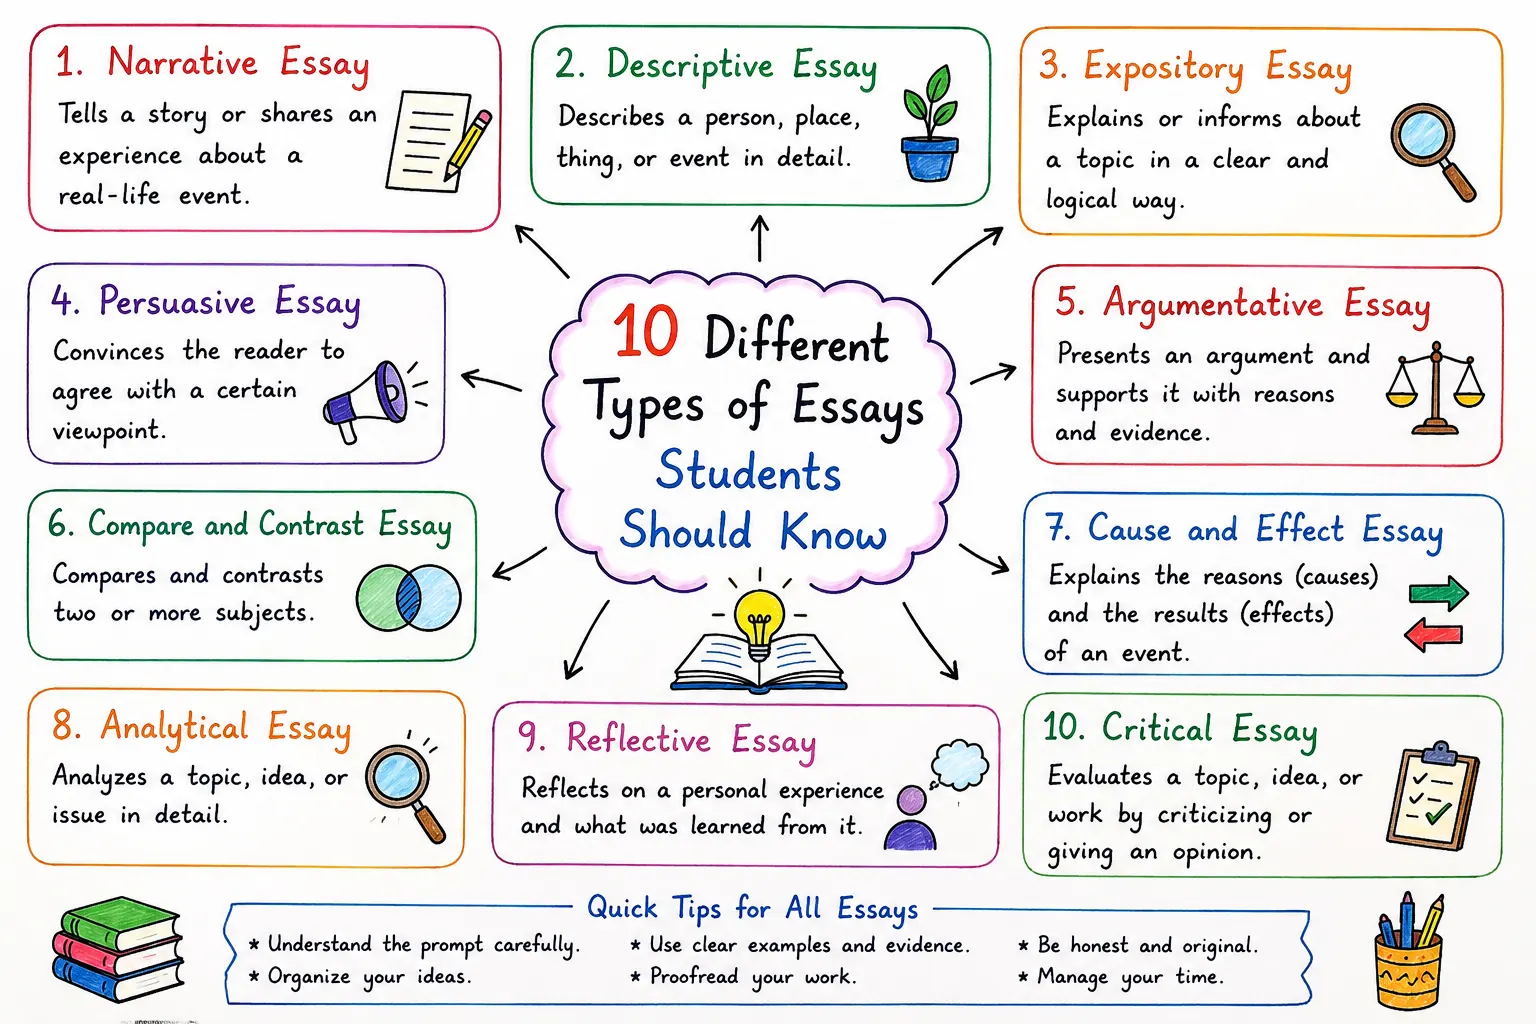 1. Narrative Essay
Tells a story or shares an
experience about a
real-life event.
2. Descriptive Essay
Describes a person, place,
thing, or event in detail.
3. Expository Essay
Explains or informs about
a topic in a clear and
logical way.
4. Persuasive Essay
Convinces the reader to
agree with a certain
viewpoint.
10 Different
Types of Essays
Students
Should Know
5. Argumentative Essay
Presents an argument and
supports it with reasons
and evidence.
6. Compare and Contrast Essay
Compares and contrasts
two or more subjects.
7. Cause and Effect Essay
Explains the reasons (causes)
and the results (effects)
of an event.
8. Analytical Essay
Analyzes a topic, idea, or
issue in detail.
9. Reflective Essay
Reflects on a personal experience
and what was learned from it.
10. Critical Essay
Evaluates a topic, idea, or
work by criticizing or
giving an opinion.
Quick Tips for All Essays
* Understand the prompt carefully.
* Organize your ideas.
* Use clear examples and evidence.
* Proofread your work.
* Be honest and original.
* Manage your time.